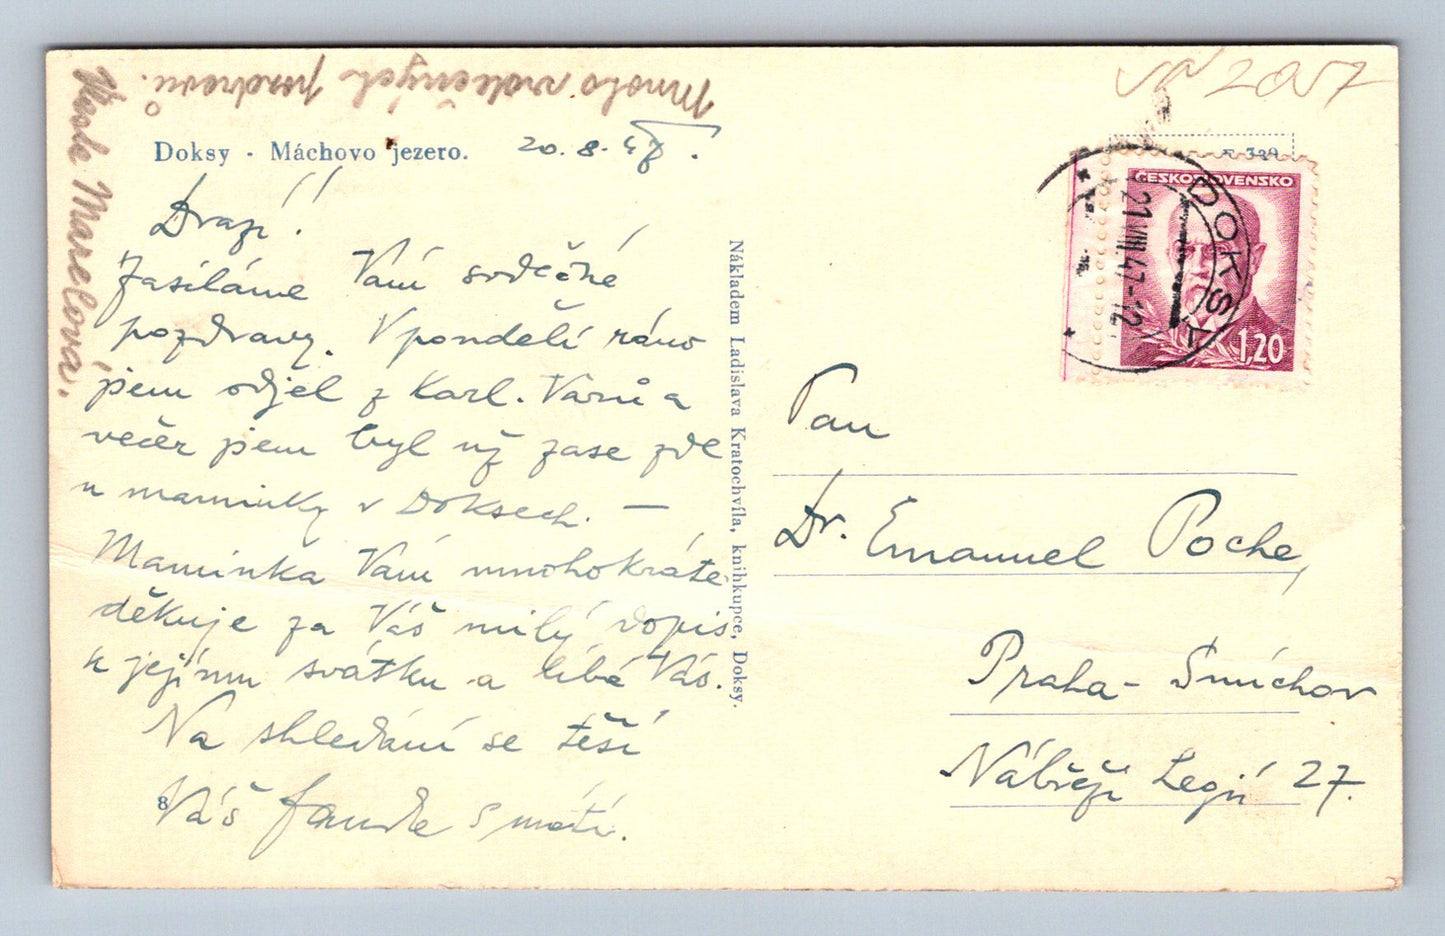 Mnoho srdečných pozdravů.
Vlasta Marelová.
Doksy - Máchovo jezero.
20. 8. 47.
Drazí!
Zasíláme Vám srdečné
pozdravy. V pondělí ráno
jsem odjel z Karl. Varů a
večer jsem byl už zase zde
u maminky v Doksech. —
Maminka Vám mnohokráte
děkuje za Váš milý dopis
k jejímu svátku a líbá Vás.
Na shledání se těší
Váš Fanda s matí.
8
Nákladem Ladislava Kratochvíla, knihkupce, Doksy.
2057
ČESKOSLOVENSKO
1,20
DOKSY
21.VIII.47-12
Pan
Dr. Emanuel Poche,
Praha - Smíchov
Nábřeží Legií 27.